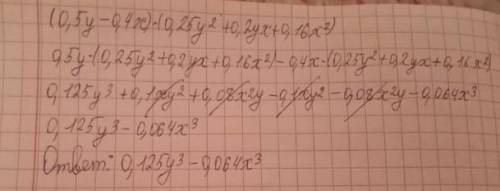 (0,5y-0,4x)·(0,25y²+0,2yx+0,16x²)
0,5y·(0,25y²+0,2yx+0,16x²)-0,4x·(0,25y²+0,2yx+0,16x²)
0,125y³+0,1xy²+0,08x²y-0,1xy²-0,08x²y-0,064x³
0,125y³-0,064x³
Ответ: 0,125y³-0,064x³